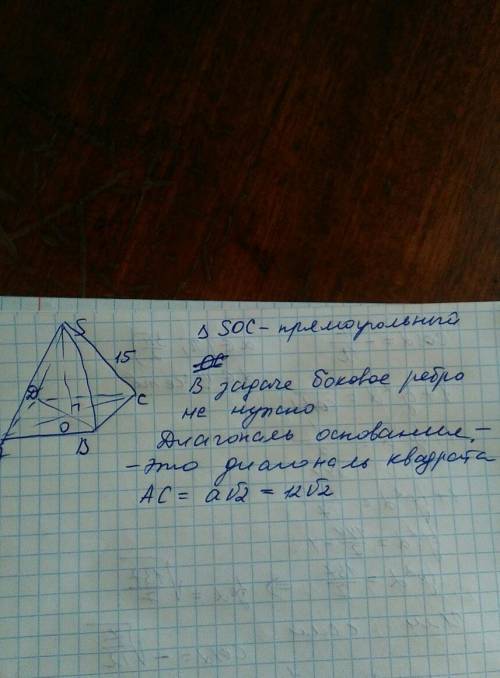 S
15
D
C
O
B
Δ SOC - прямоугольный
ОС
В задаче боковое ребро
не нужно
Диагональ основания, -
- это диагональ квадрата
AC = a√2 = 12√2